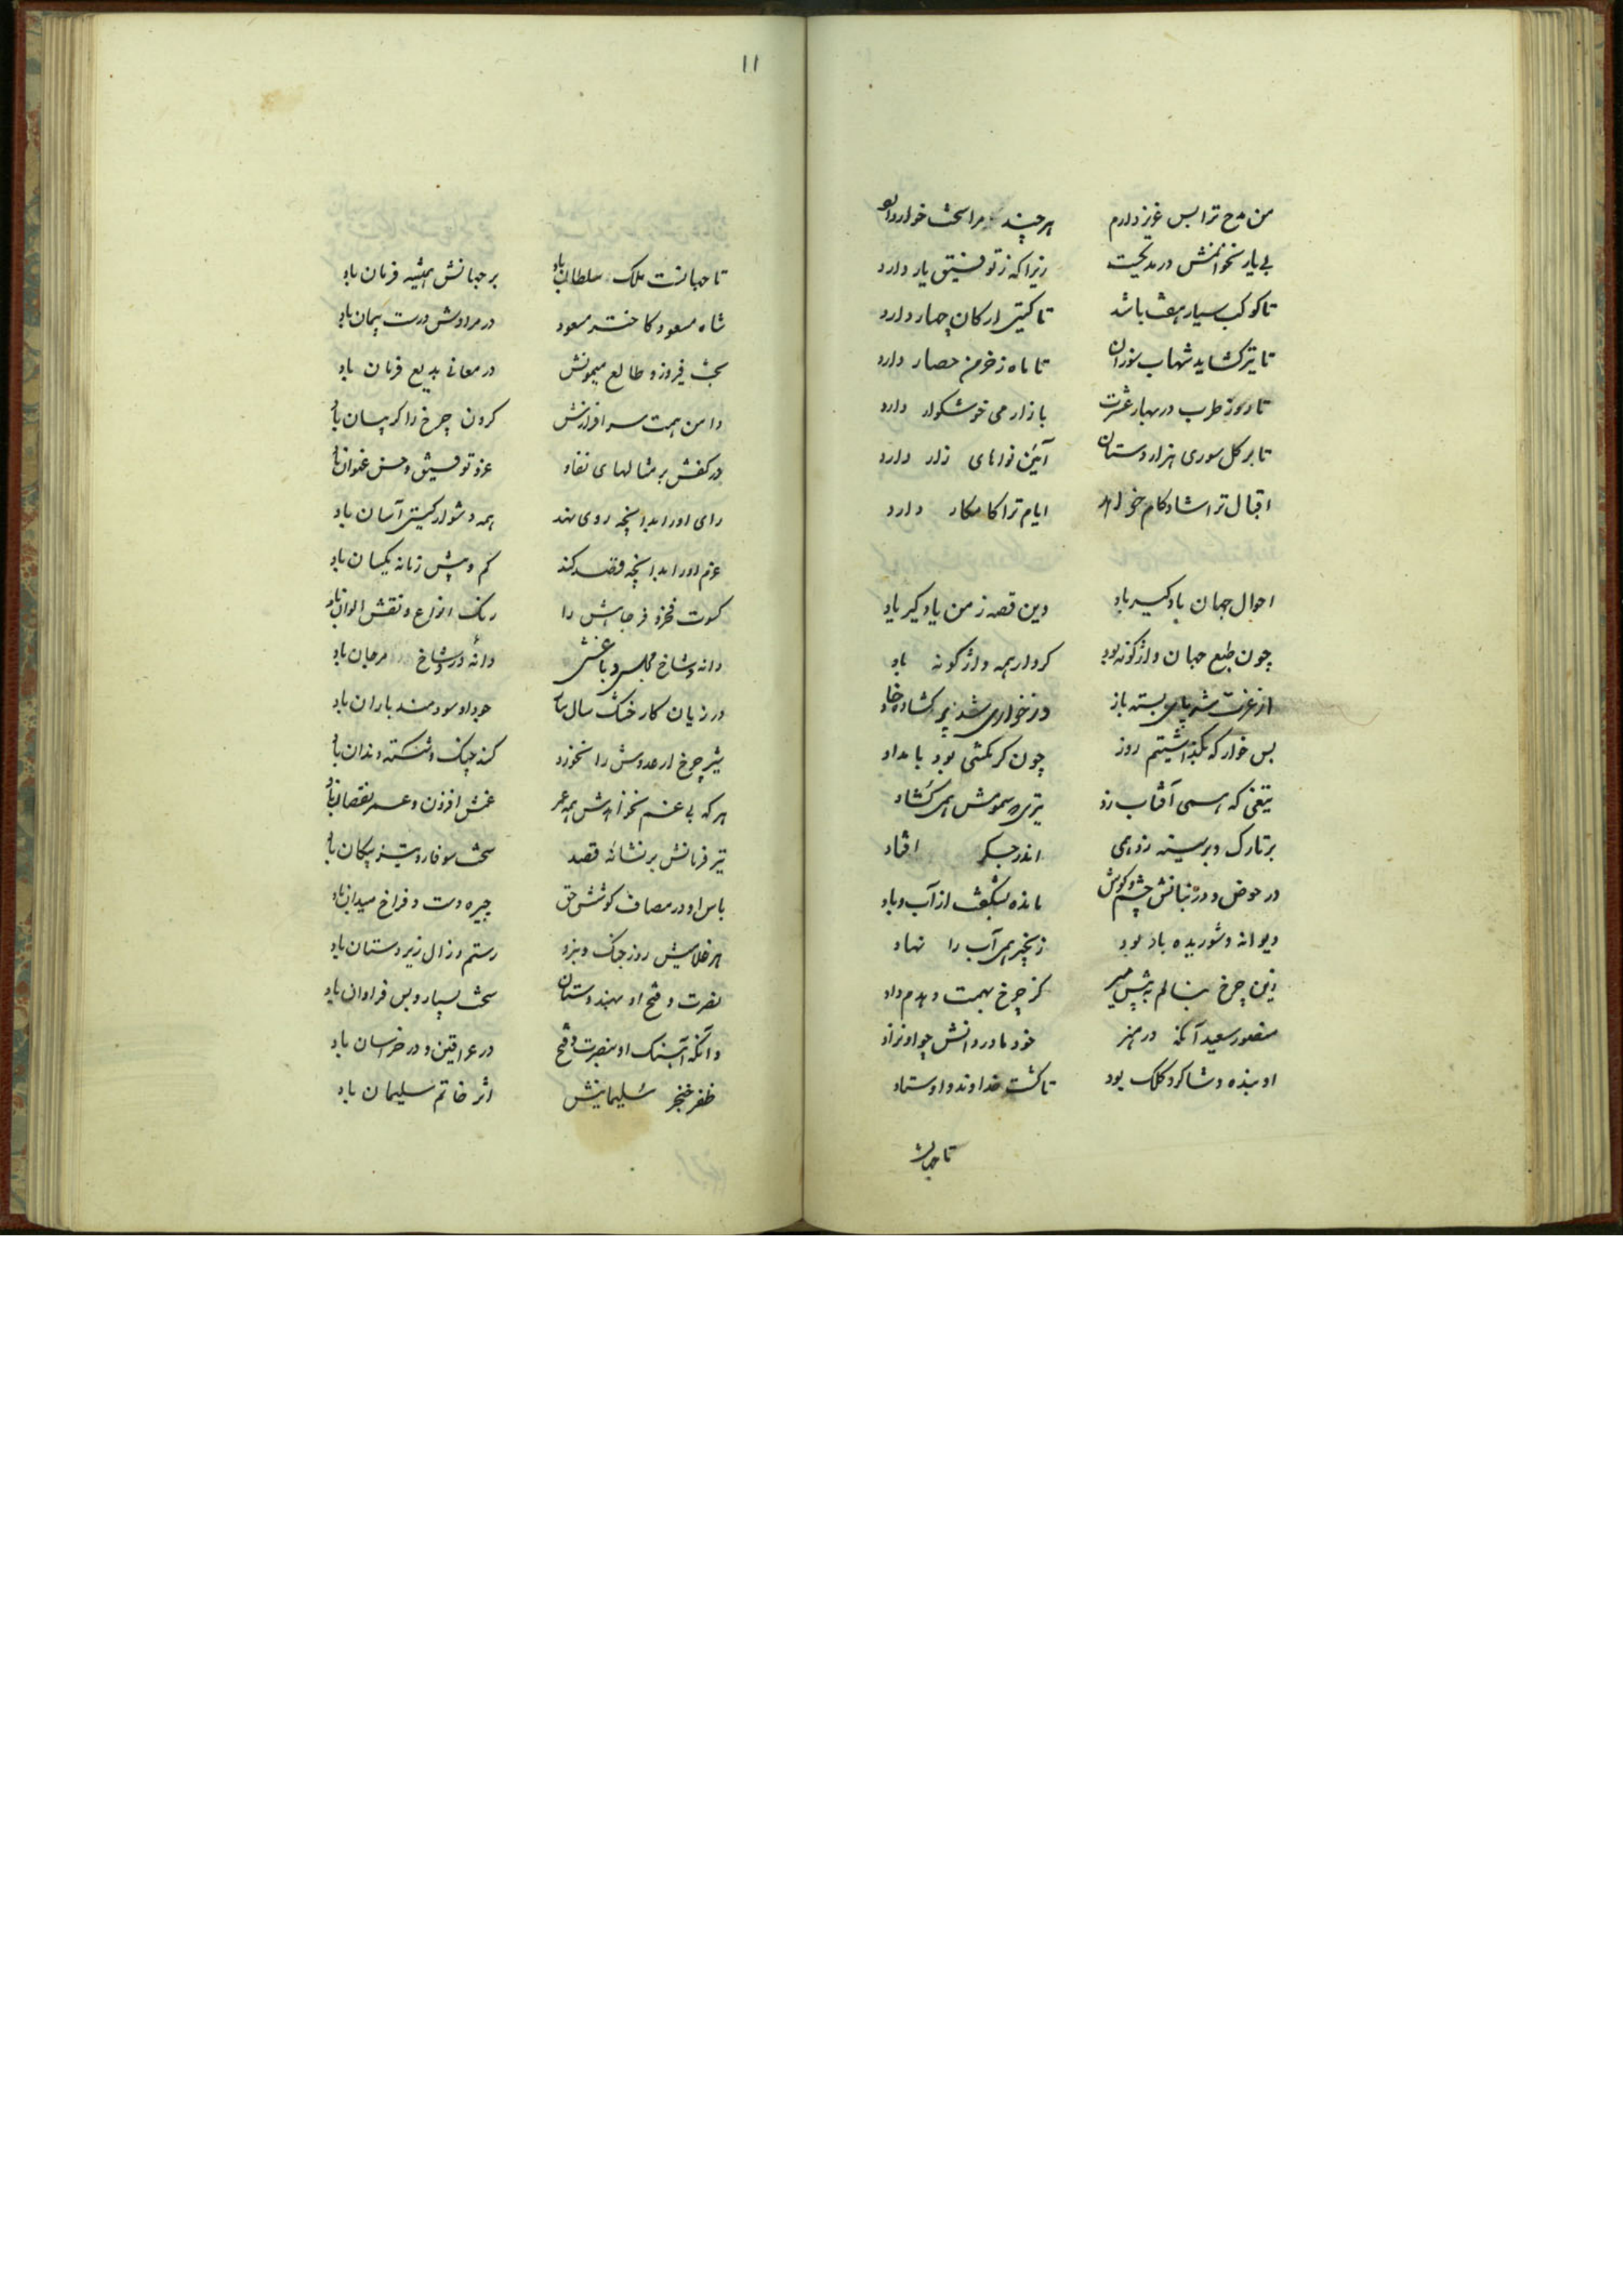 من مدح ترا بس عزیز دارم
هر چند مرا سخت خوار دارد
بی یار نخوانمش در مدیحت
زیرا که ز توفیق یار دارد
تا کوکب سیار هفت باشد
تا گیتی ارکان چهار دارد
تا تیر گشاید شهاب سوزان
تا ماه ز خرمن حصار دارد
تا روز طرب در بهار عشرت
بازار می خوشگوار دارد
تا بر گل سوری هزار دستان
آئین نواهای زار دارد
اقبال ترا شادکام خواهد
ایام ترا کامکار دارد
احوال جهان باد گیر باد
وین قصه ز من یاد گیر یاد
چون طبع جهان واژگونه بود
کردار همه واژگونه باد
از عزت شد پای بسته باز
وز خواری شد پر گشاده خاد
بس خوار که بگذاشتیم روز
چون گر بکشی بود بامداد
تیغی که همی آفتاب زد
تیری سمومش همی گشاد
بر تارک و بر سینه زد همی
اندر جگر افتاد
در حوض و در بنانش چشم و گوش
مانده بشگفت از آب و باد
دیوانه و شوریده باد بود
زنجیر همی آب را نهاد
زین چرخ بنالم به پیش میر
کز چرخ بهمت دهدم داد
منصور سعید آنکه در هنر
خود مادر دانش چو او نزاد
او بنده و شاگرد کلک بود
تا گشت خداوند و اوستاد
تا جهان
۱۱
تا جهانست ملک سلطان باد
بر جهانش همیشه فرمان باد
شاه مسعود کاختر مسعود
در مرادش درست پیمان باد
بخت فیروز و طالع میمونش
در معانی بدیع فرمان باد
دامن همت سرافرازش
گردن چرخ را گریبان باد
در کفش بر مثالهای نفاد
عز و توفیق و حسن عنوان باد
رای او را بدانچه روی نهد
همه دشوار گیتی آسان باد
عزم او را بدانچه قصد کند
کم و بیش زمانه یکسان باد
کسوت فخر و فر جاهش را
رنگ انواع و نقش الوان باد
دانه و شاخ مجلس و باغش
دانهٔ در و شاخ مرجان باد
در زیان کار خشک سال نیاز
جود او سودمند باران باد
شیر چرخ ار عدوش را نخورد
کند چنگ و شکسته دندان باد
هر که بی غم نخواهدش همه عمر
غمش افزون و عمر نقصان باد
تیر فرمانش بر نشانه قصد
سخت سوفار و تیز پیکان باد
باس او در مصاف کوشش حق
چیره دست و فراخ میدان باد
هر غلامیش روز جنگ و نبرد
رستم و زال زیر دستان باد
نصرت و فتح او بهندوستان
سخت بسیار و بس فراوان باد
وآنگه آهنگ او بنصرت و فتح
در عراقین و در خراسان باد
ظفر خنجر سلیمانیش
اثر خاتم سلیمان باد